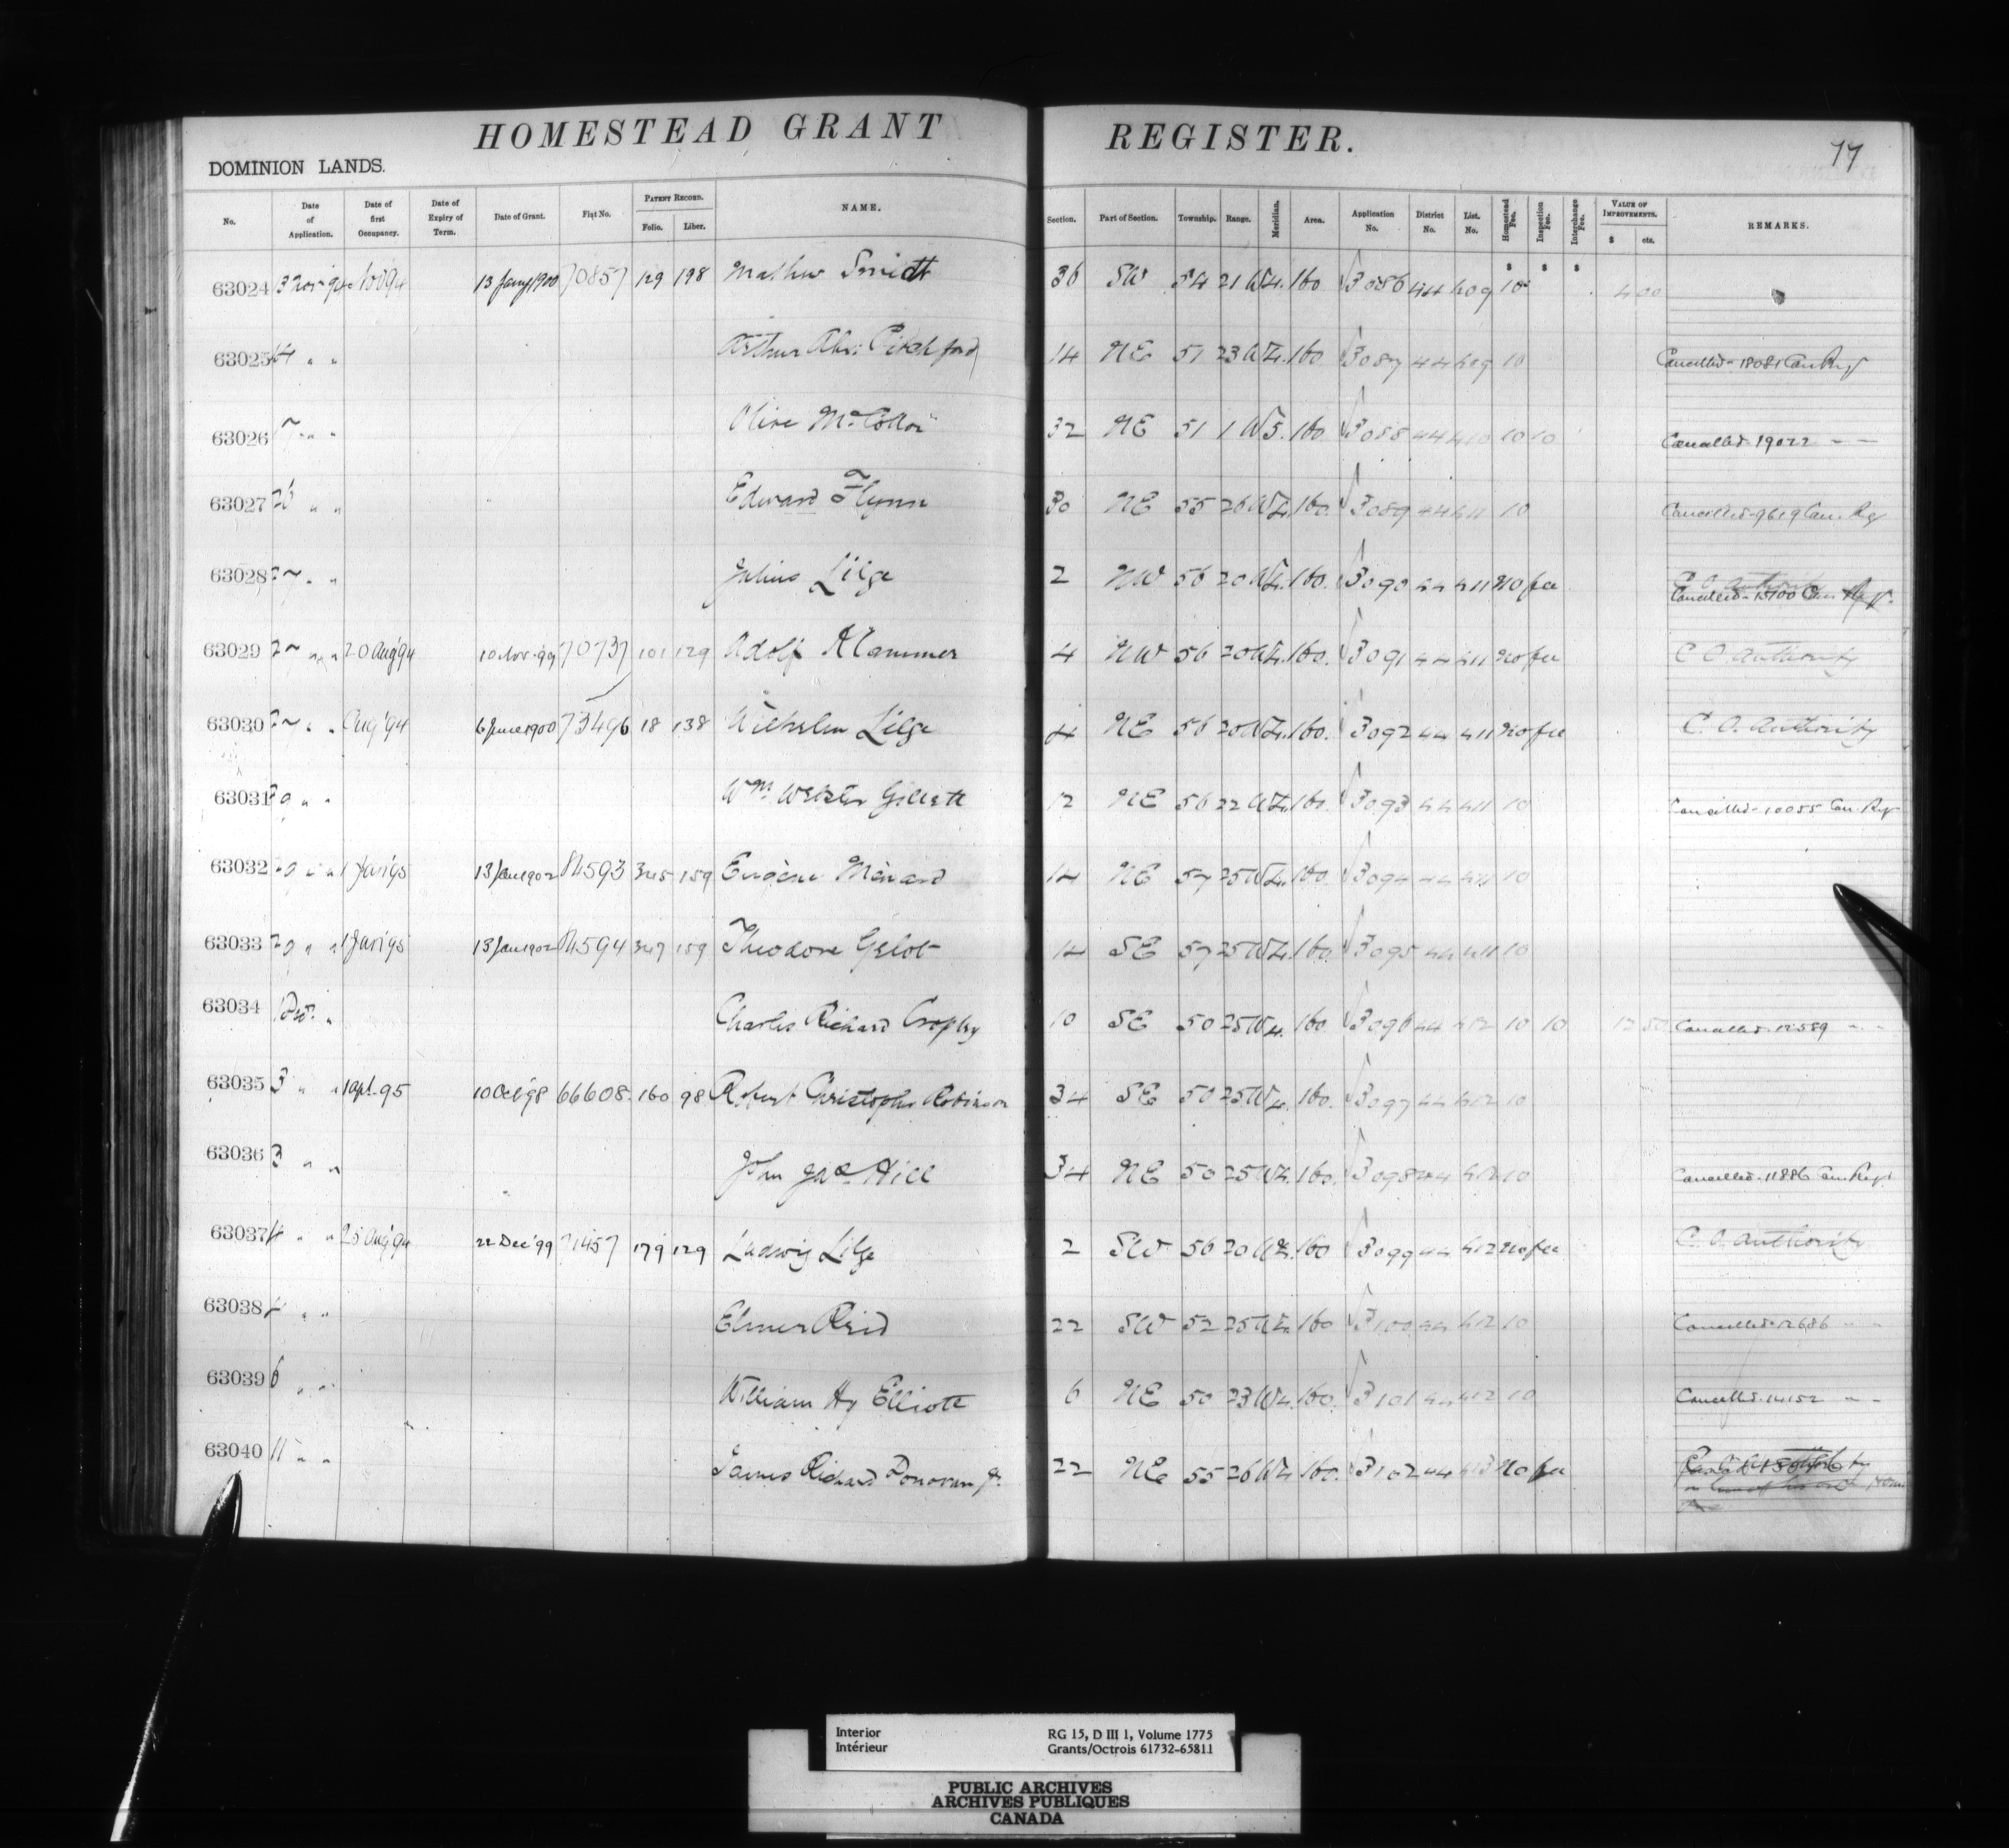 HOMESTEAD GRANT REGISTER.
77
DOMINION LANDS.
No. Date of Application. Date of first Occupancy. Date of Expiry of Term. Date of Grant. Fiat No. PATENT RECORD. Folio. Liber. NAME. Section. Part of Section. Township. Range. Meridian. Area. Application No. District No. List. No. Homestead Fee. Inspection Fee. Interchange Fee. VALUE OF IMPROVEMENTS. $ cts. REMARKS.
$ $ $
63024 3 Nov 94 Nov 94 13 Jany 1900 70857 129 198 Mathew Smidt 36 SW 54 21 W4. 160 3086 44 409 10 400
63025 14 " " Arthur Pitchford 14 NE 51 23 W4. 160 3087 44 409 10 Cancelled - 18081 Can Reg
63026 " " Olive 32 NE 51 1 W5. 160 3088 44 410 10 10 Cancelled 19022 " "
63027 26 " " Edward Flynn 30 NE 55 26 W4. 160. 3089 44 411 10 Cancelled - 9619 Can. Reg
63028 27 " " Julius Lilge 2 NW 56 20 W4. 160. 3090 44 411 No fee C O authority Cancelled - Can Reg.
63029 27 " " 20 Aug '94 10 Nov. 99 70737 101 129 Adolf Klammer 4 NW 56 20 W4. 160. 3091 44 411 No fee C O. authority
63030 27 " " Aug '94 6 June 1900 73496 18 138 Wilhelm Lilge 4 NE 56 20 W4. 160. 3092 44 411 No fee C. O. authority
63031 " " Wm Webster Gillett 12 NE 56 22 W4. 160. 3093 44 411 10 Cancelled - 10055 Can. Reg
63032 " " 1 Jan '95 13 Jan 1902 84593 345 159 Eugène Ménard 14 NE 57 25 W4. 160 3094 44 411 10
63033 " " 1 Jan '95 13 Jan 1902 84594 347 159 Theodore Gelot 14 SE 57 25 W4. 160 3095 44 411 10
63034 1 Dec. " Charles Richard Cropley 10 SE 50 25 W4. 160. 3096 44 412 10 10 12 50 Cancelled 12589 " "
63035 3 " " 1 Apl. 95 10 Oct '98 66608 160 98 Robert Christopher Robinson 34 SE 50 25 W4. 160. 3097 44 412 10
63036 3 " " John Jas. Hill 34 NE 50 25 W4. 160. 3098 44 412 10 Cancelled - 11886 Can Reg.
63037 4 " " 25 Aug '94 22 Dec '99 71457 179 129 Ludwig Lilge 2 SW 56 20 W4. 160 3099 44 412 No fee C. O. authority
63038 4 " " Elmer Reid 22 SW 52 25 W4. 160 3100 44 412 10 Cancelled 12686 " "
63039 6 " " William Hy Elliott 6 NE 50 23 W4. 160. 3101 44 412 10 Cancelled. 14152 " "
63040 11 " " James Richard Donovan Jr. 22 NE 55 26 W4. 160. 3102 44 413 No fee
Interior RG 15, D III 1, Volume 1775
Intérieur Grants/Octrois 61732-65811
PUBLIC ARCHIVES
ARCHIVES PUBLIQUES
CANADA